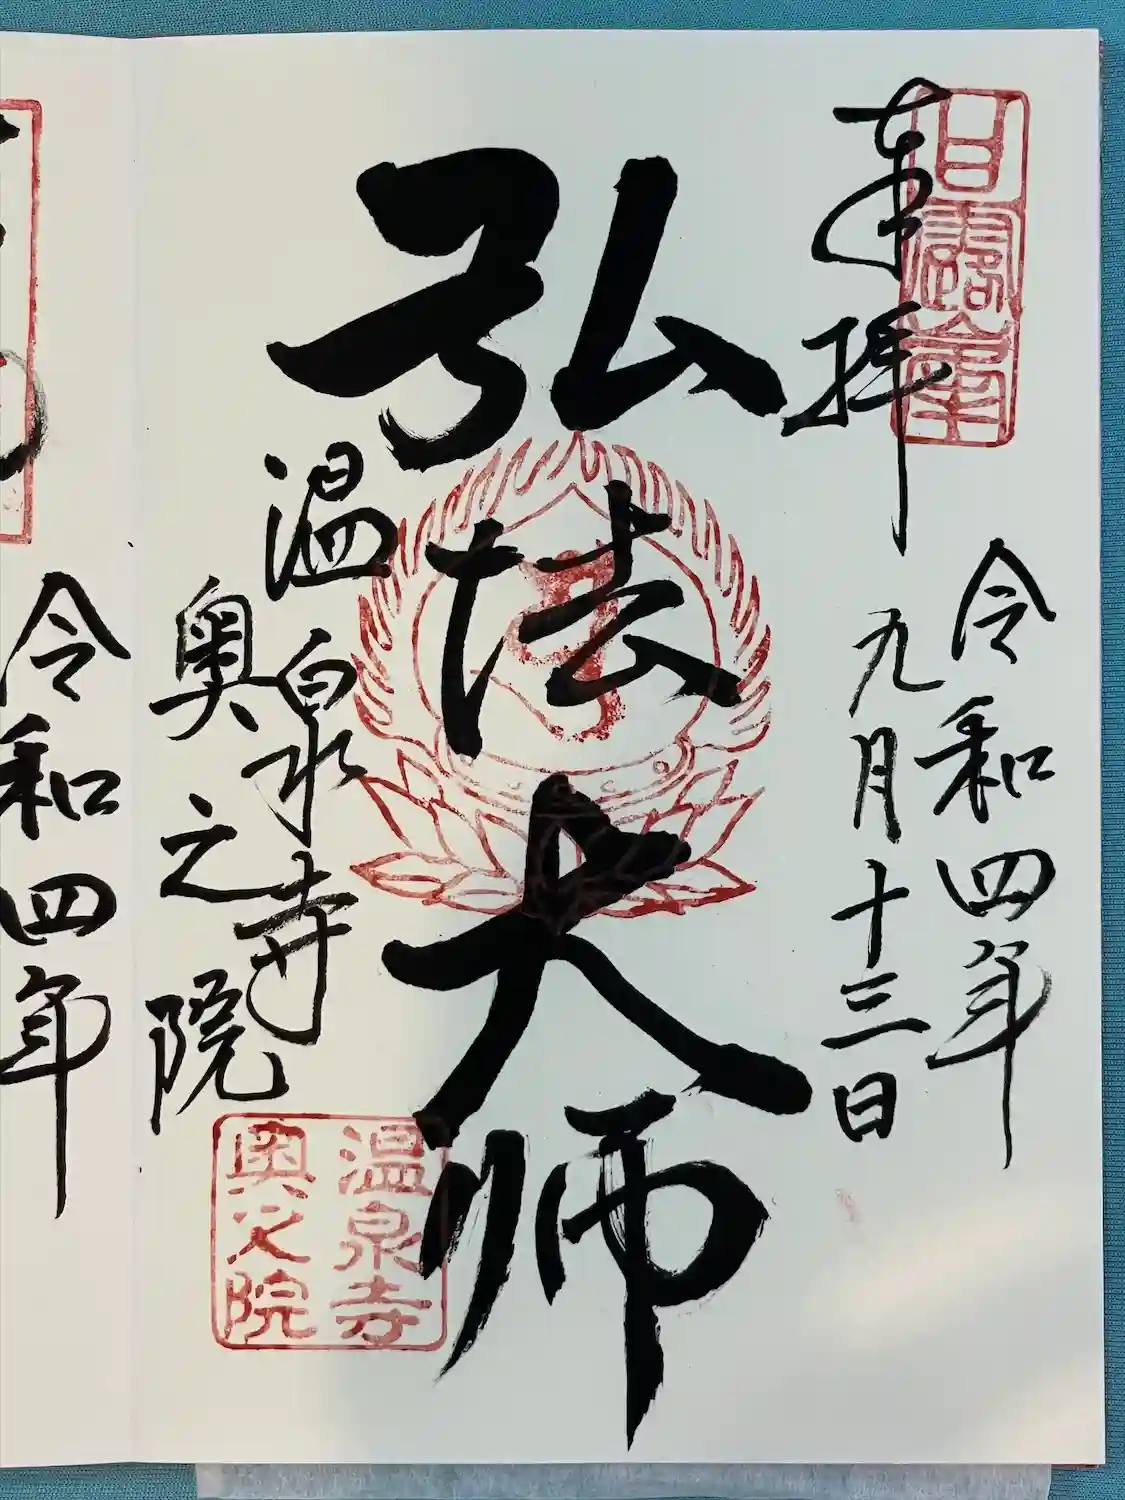 奉拝
甘露山
令和四年
九月十三日
弘法大师
温泉寺
奥之院
温泉寺
奥之院
令和四年